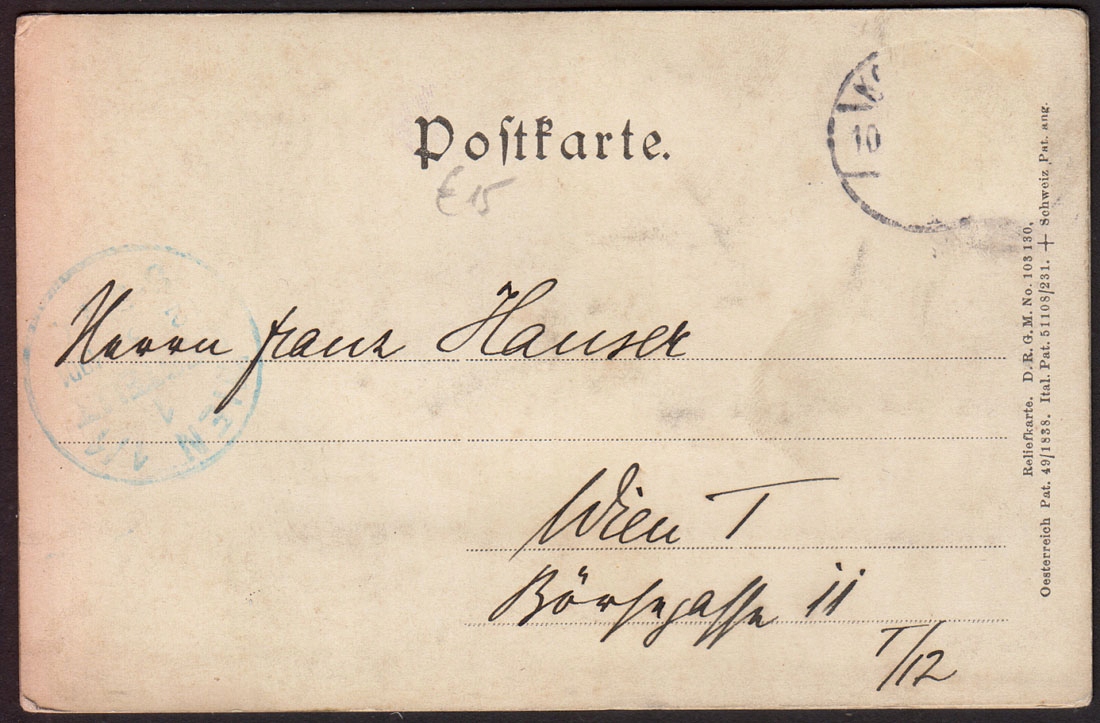 Postkarte.
€ 15
10
Herrn Franz Hauser
Wien I
Börsegasse 11
I/12
Reliefkarte. D. R. G. M. No. 103 130,
Oesterreich Pat. 49/1838. Ital. Pat. 51108/231. + Schweiz Pat. ang.